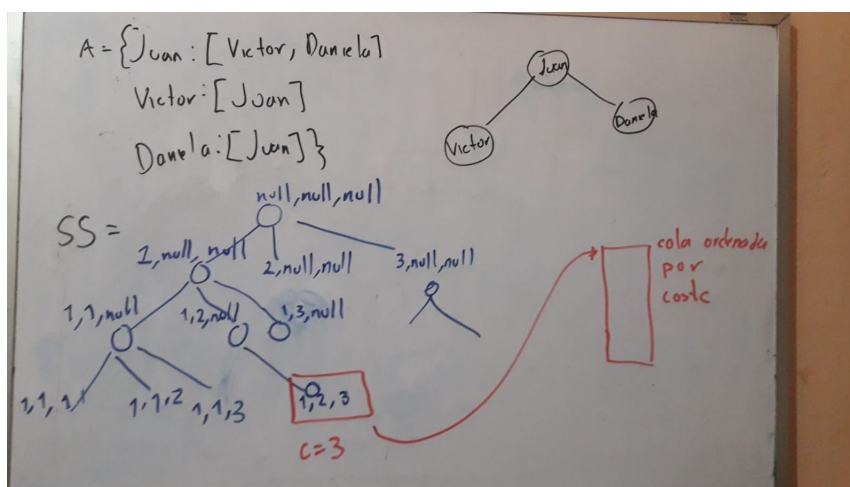 A = {Juan: [Victor, Daniela]
Victor: [Juan]
Daniela: [Juan]}
Juan
Victor
Daniela
SS =
null, null, null
1, null, null
2, null, null
3, null, null
1, 1, null
1, 2, null
1, 3, null
1, 1, 1
1, 1, 2
1, 1, 3
1, 2, 3
c=3
cola ordenada
por
coste